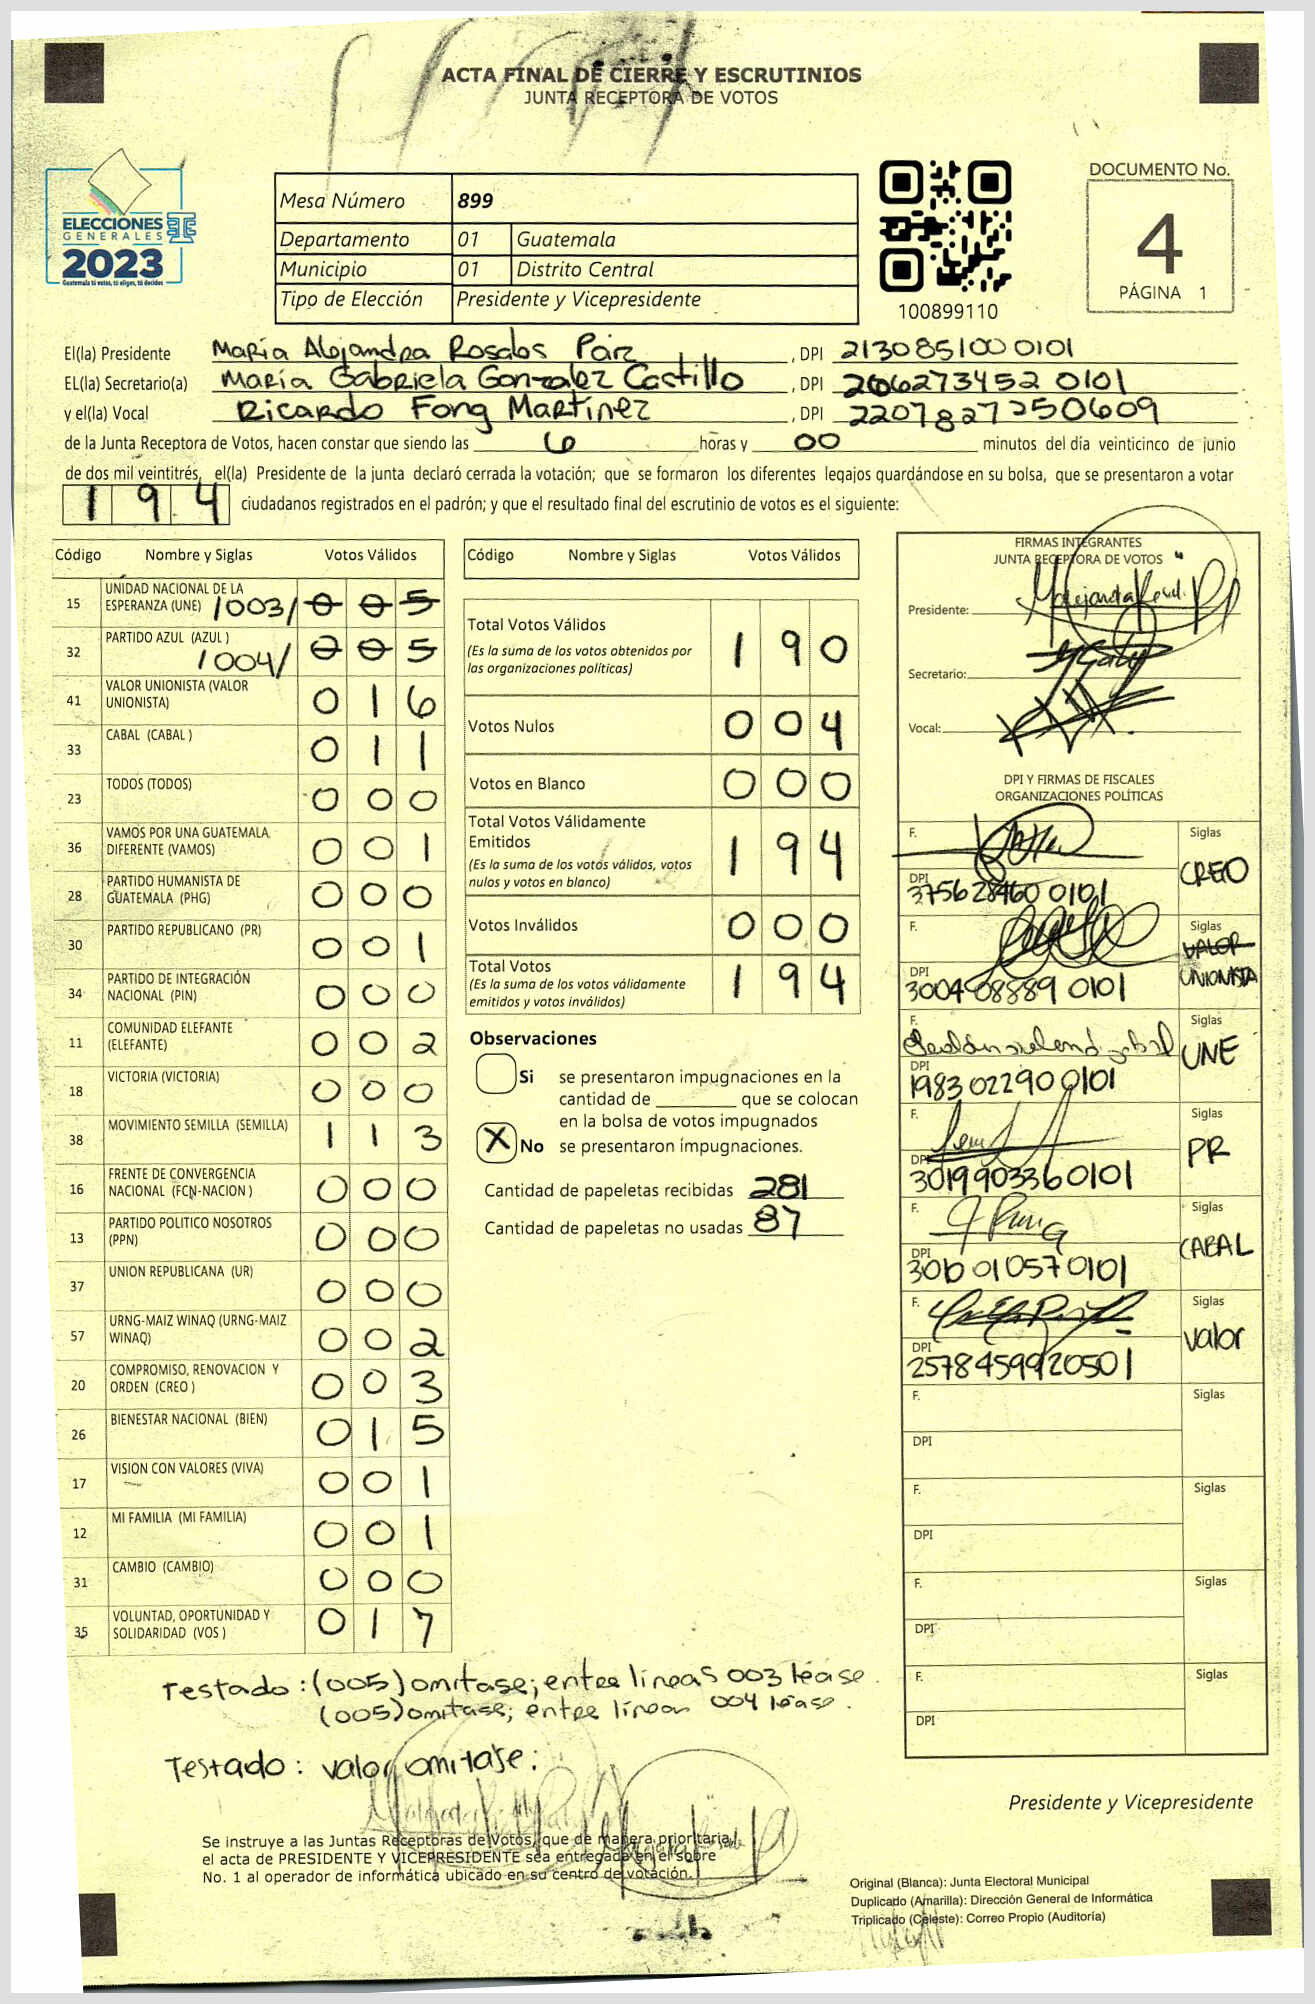 ACTA FINAL DE CIERRE Y ESCRUTINIOS
JUNTA RECEPTORA DE VOTOS
ELECCIONES
GENERALES
2023
Guatemala tú votas, tú eliges, tú decides
Mesa Número 899
Departamento 01 Guatemala
Municipio 01 Distrito Central
Tipo de Elección Presidente y Vicepresidente
100899110
DOCUMENTO No.
4
PÁGINA 1
El(la) Presidente María Alejandra Rosales Paiz, DPI 2130851000101
EL(la) Secretario(a) María Gabriela Gonzalez Castillo, DPI 2606273452 0101
y el(la) Vocal Ricardo Fong Martínez, DPI 2207827250609
de la Junta Receptora de Votos, hacen constar que siendo las 6 horas y 00 minutos del día veinticinco de junio
de dos mil veintitrés, el(la) Presidente de la junta declaró cerrada la votación; que se formaron los diferentes legajos guardándose en su bolsa, que se presentaron a votar
194 ciudadanos registrados en el padrón; y que el resultado final del escrutinio de votos es el siguiente:
Código Nombre y Siglas Votos Válidos
15 UNIDAD NACIONAL DE LA ESPERANZA (UNE) /003/ 005
32 PARTIDO AZUL (AZUL ) /004/ 005
41 VALOR UNIONISTA (VALOR UNIONISTA) 016
33 CABAL (CABAL ) 011
23 TODOS (TODOS) 000
36 VAMOS POR UNA GUATEMALA DIFERENTE (VAMOS) 001
28 PARTIDO HUMANISTA DE GUATEMALA (PHG) 000
30 PARTIDO REPUBLICANO (PR) 001
34 PARTIDO DE INTEGRACIÓN NACIONAL (PIN) 000
11 COMUNIDAD ELEFANTE (ELEFANTE) 002
18 VICTORIA (VICTORIA) 000
38 MOVIMIENTO SEMILLA (SEMILLA) 113
16 FRENTE DE CONVERGENCIA NACIONAL (FCN-NACION ) 000
13 PARTIDO POLITICO NOSOTROS (PPN) 000
37 UNION REPUBLICANA (UR) 000
57 URNG-MAIZ WINAQ (URNG-MAIZ WINAQ) 002
20 COMPROMISO, RENOVACION Y ORDEN (CREO ) 003
26 BIENESTAR NACIONAL (BIEN) 015
17 VISION CON VALORES (VIVA) 001
12 MI FAMILIA (MI FAMILIA) 001
31 CAMBIO (CAMBIO) 000
35 VOLUNTAD, OPORTUNIDAD Y SOLIDARIDAD (VOS ) 017
Código Nombre y Siglas Votos Válidos
Total Votos Válidos 190
(Es la suma de los votos obtenidos por
las organizaciones políticas)
Votos Nulos 004
Votos en Blanco 000
Total Votos Válidamente
Emitidos 194
(Es la suma de los votos válidos, votos
nulos y votos en blanco)
Votos Inválidos 000
Total Votos 194
(Es la suma de los votos válidamente
emitidos y votos inválidos)
Observaciones
Si se presentaron impugnaciones en la
cantidad de ________ que se colocan
en la bolsa de votos impugnados
X No se presentaron impugnaciones.
Cantidad de papeletas recibidas 281
Cantidad de papeletas no usadas 87
FIRMAS INTEGRANTES
JUNTA RECEPTORA DE VOTOS
Presidente:
Secretario:
Vocal:
DPI Y FIRMAS DE FISCALES
ORGANIZACIONES POLÍTICAS
F. Siglas CREO
DPI 375628460 0101
F. Siglas VALOR UNIONISTA
DPI 300408889 0101
F. Siglas UNE
DPI 1983022900101
F. Siglas PR
DPI 3019903360101
F. Siglas CABAL
DPI
F. Siglas Valor
DPI 2578459920501
F. Siglas
DPI
F. Siglas
DPI
F. Siglas
DPI
F. Siglas
DPI
Testado: (005) omitase; entre líneas 003 léase.
(005) omitase; entre líneas 004 léase.
Testado: valor omitase:
Se instruye a las Juntas Receptoras de Votos, que de manera prioritaria,
el acta de PRESIDENTE Y VICEPRESIDENTE sea entregada en el sobre
No. 1 al operador de informática ubicado en su centro de votación.
Presidente y Vicepresidente
Original (Blanca): Junta Electoral Municipal
Duplicado (Amarilla): Dirección General de Informática
Triplicado (Celeste): Correo Propio (Auditoría)